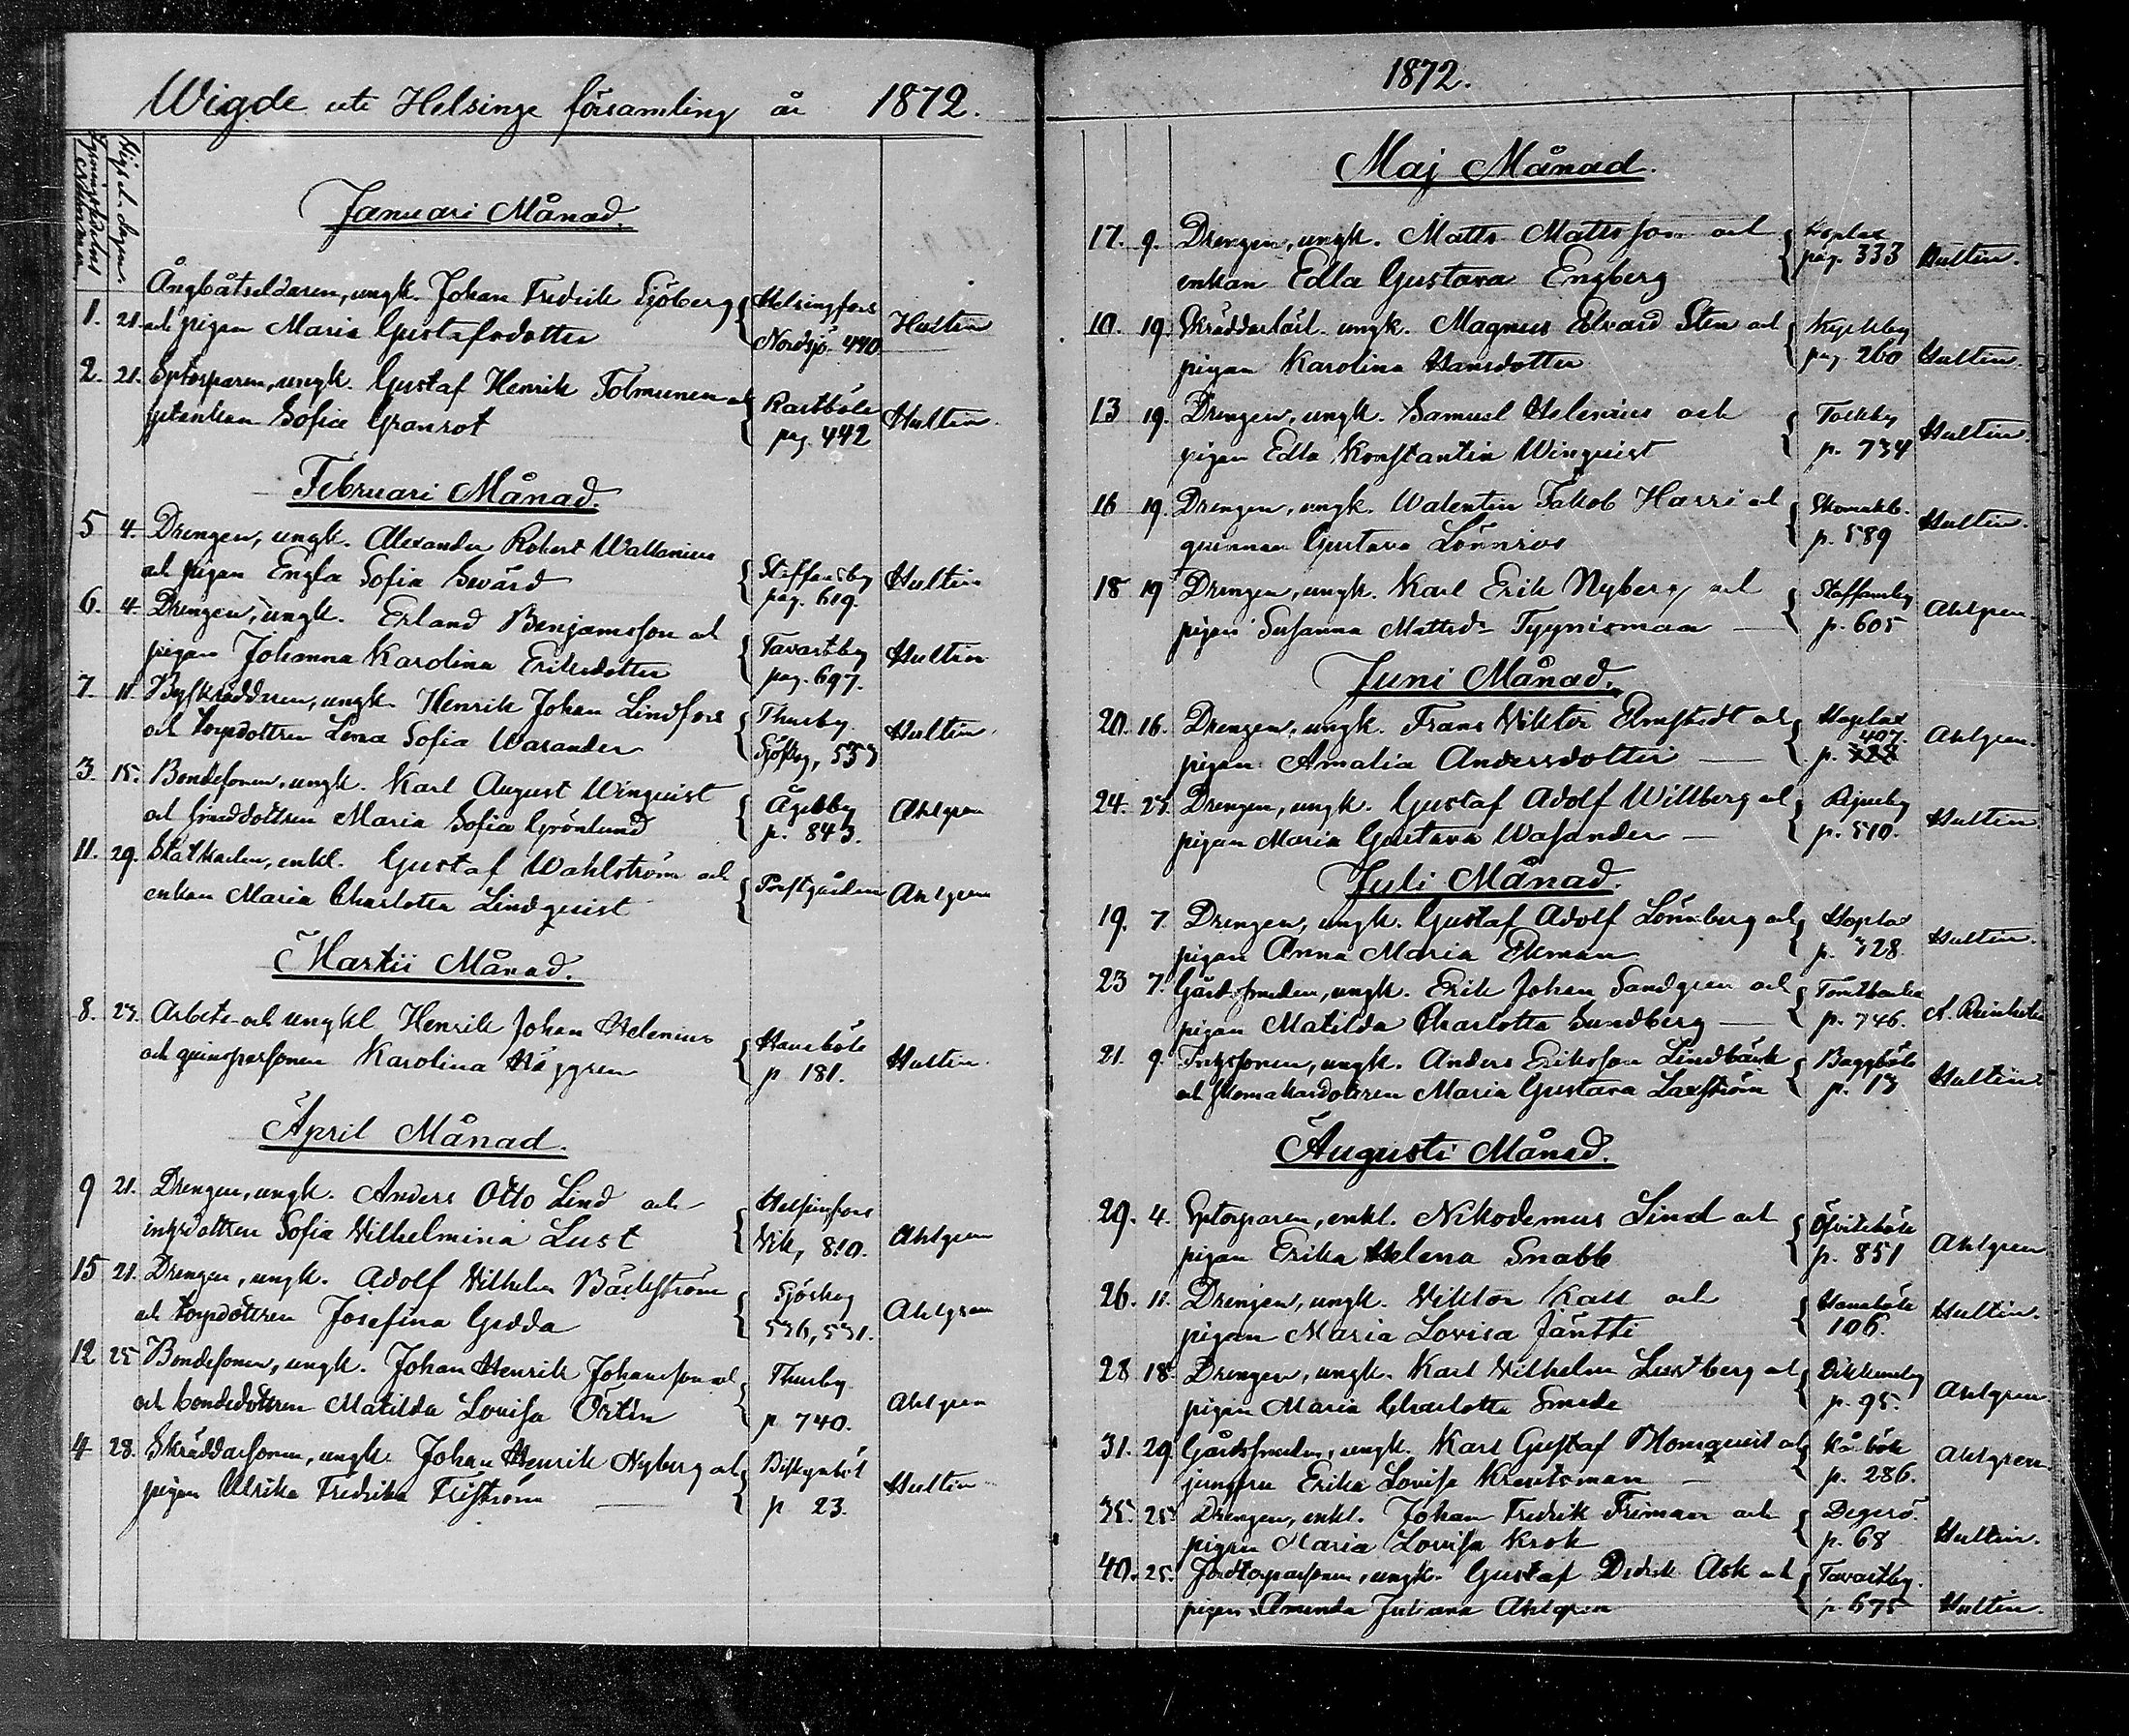 Wigde uti Helsinge församling år 1872.
Lysningssedelns Nummer
Vigsel dagen.
Januari Månad.
1. 21. Ångbåtseldaren, ungk. Johan Fredrik Sjöberg { Helsingfors
och pigan Maria Gustafsdotter Nordsjö. 440 Hultin
2. 21. Sptorparen, ungk. Gustaf Henrik Tolmunen och { Rastböle
enkan Sofia Granrot pag. 442 Hultin.
Februari Månad.
5 4. Drengen, ungk. Alexander Robert Wallenius
och pigan Engla Sofia Swärd { Staffansby pag. 619. Hultin
6. 4. Drengen, ungk. Erland Benjamsson och
pigan Johanna Karolina Eriksdotter { Tavastby pag. 697. Hultin
7. 11. Byskräddaren, ungk. Henrik Johan Lindfors
och torpdottren Lena Sofia Warander { Thusby Sjöskog, 533 Hultin.
3 15. Bondesonen, ungk. Karl August Winquist
och smeddottren Maria Sofia Grönlund { Åggelby p. 843. Ahlgren
11. 29. Statkarlen, enkl. Gustaf Wahlström och
enkan Maria Charlotta Lindquist { Prestgården Ahlgren
Martii Månad.
8. 23. Arbets- och ungkl Henrik Johan Helenius
och qvinspersonen Karolina Häggren { Hanaböle p 181. Hultin.
April Månad.
9 21. Drengen, ungk. Anders Otto Lind och
inhysdottren Sofia Vilhelmina Lust { Helsingfors Vik, 810. Ahlgren
15 21. Drengen, ungk. Adolf Vilhelm Bäckström
och torpdottren Josefina Gedda { Sjöskog 536, 531. Ahlgren
12 25 Bondesonen, ungk. Johan Henrik Johansson och
och bondedottren Matilda Lovisa Örtin { Thusby p. 740. Ahlgren
4 28. Skräddarsonen, ungk. Johan Henrik Nyberg och
pigan Ulrika Fredrika Friström { p 23. Hultin
1872.
Maj Månad.
17. 9. Drengen, ungk. Matts Mattsson och
enkan Edla Gustava Engberg { Hoplax pag. 333 Hultin.
10. 19. Skräddarlärl. ungk. Magnus Edvard Sten och
pigan Karolina Hansdotter { Nyckby pag. 260 Hultin.
13 19. Drengen, ungk. Samuel Helenius och
pigan Edla Konstantia Winquist { Tolkby p. 734 Hultin.
16 19. Drengen, ungk. Walentin Jakob Harri och
qvinnan Gustava Lönnros { Skomakb. p. 589 Hultin.
18 19 Drengen, ungk. Karl Erik Nyberg och
pigan Susanna Mattsdr Tyynismaa { Staffansby p. 605 Ahlgren
Juni Månad.
20. 16. Drengen, ungk. Frans Viktor Elmstedt och
pigan Amalia Andersdotter { Hoplax 407. p. Ahlgren.
24. 23. Drengen, ungk. Gustaf Adolf Willberg och
pigan Maria Gustava Wasander { p. 510. Hultin
Juli Månad.
19. 7. Drengen, ungk. Gustaf Adolf Lönnberg och
pigan Anna Maria Ekman { Hoplax p. 328. Hultin.
23 7. Gårdssmeden, ungk. Erik Johan Sandgren och
pigan Matilda Charlotta Sundberg { Tomtbacka p. 746.
21. 9. Inhyssonen, ungk. Anders Eriksson Lindbäck
och skomakardottren Maria Gustava Laxström { Baggböle p. 13 Hultin
Augusti Månad.
29. 4. Sptorparen, enkl. Nikodemus Lind och
pigan Erika Helena Snabb { p. 851 Ahlgren
26. 11. Drengen, ungk. Viktor Kall och
pigan Maria Lovisa Jäntti { Hanaböle 106. Hultin.
28 18. Drengen, ungk. Karl Vilhelm Lustberg och
pigan Maria Charlotta Smede { Dickursby p. 95. Ahlgren.
31. 29. Gårdssmeden, ungk. Karl Gustaf Blomquist och
jungfru Erika Lovisa Kreutsman { Råböle p. 286. Ahlgren.
35. 25. Drengen, enkl. Johan Fredrik Friman och
pigan Maria Lovisa Krok { Degerö. p. 68 Hultin.
40. 25. Jordtorparsonen, ungk. Gustaf Didrik Ask och
pigan Amanda Juliana Ahlgren { Tavastby. p. 675 Hultin.